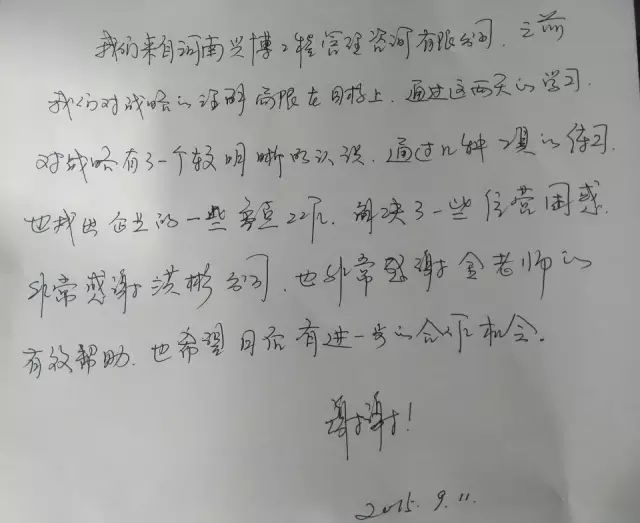 我们来自河南兴博工程管理咨询有限公司，之前
我们对战略的理解局限在目标上，通过这两天的学习，
对战略有了一个较明晰的认识，通过几种工具的练习，
也找出企业的一些重点工作，解决了一些经营困惑，
非常感谢洪彬公司，也非常感谢金老师的
有效帮助，也希望日后有进一步的合作机会。
谢谢！
2015.9.11.